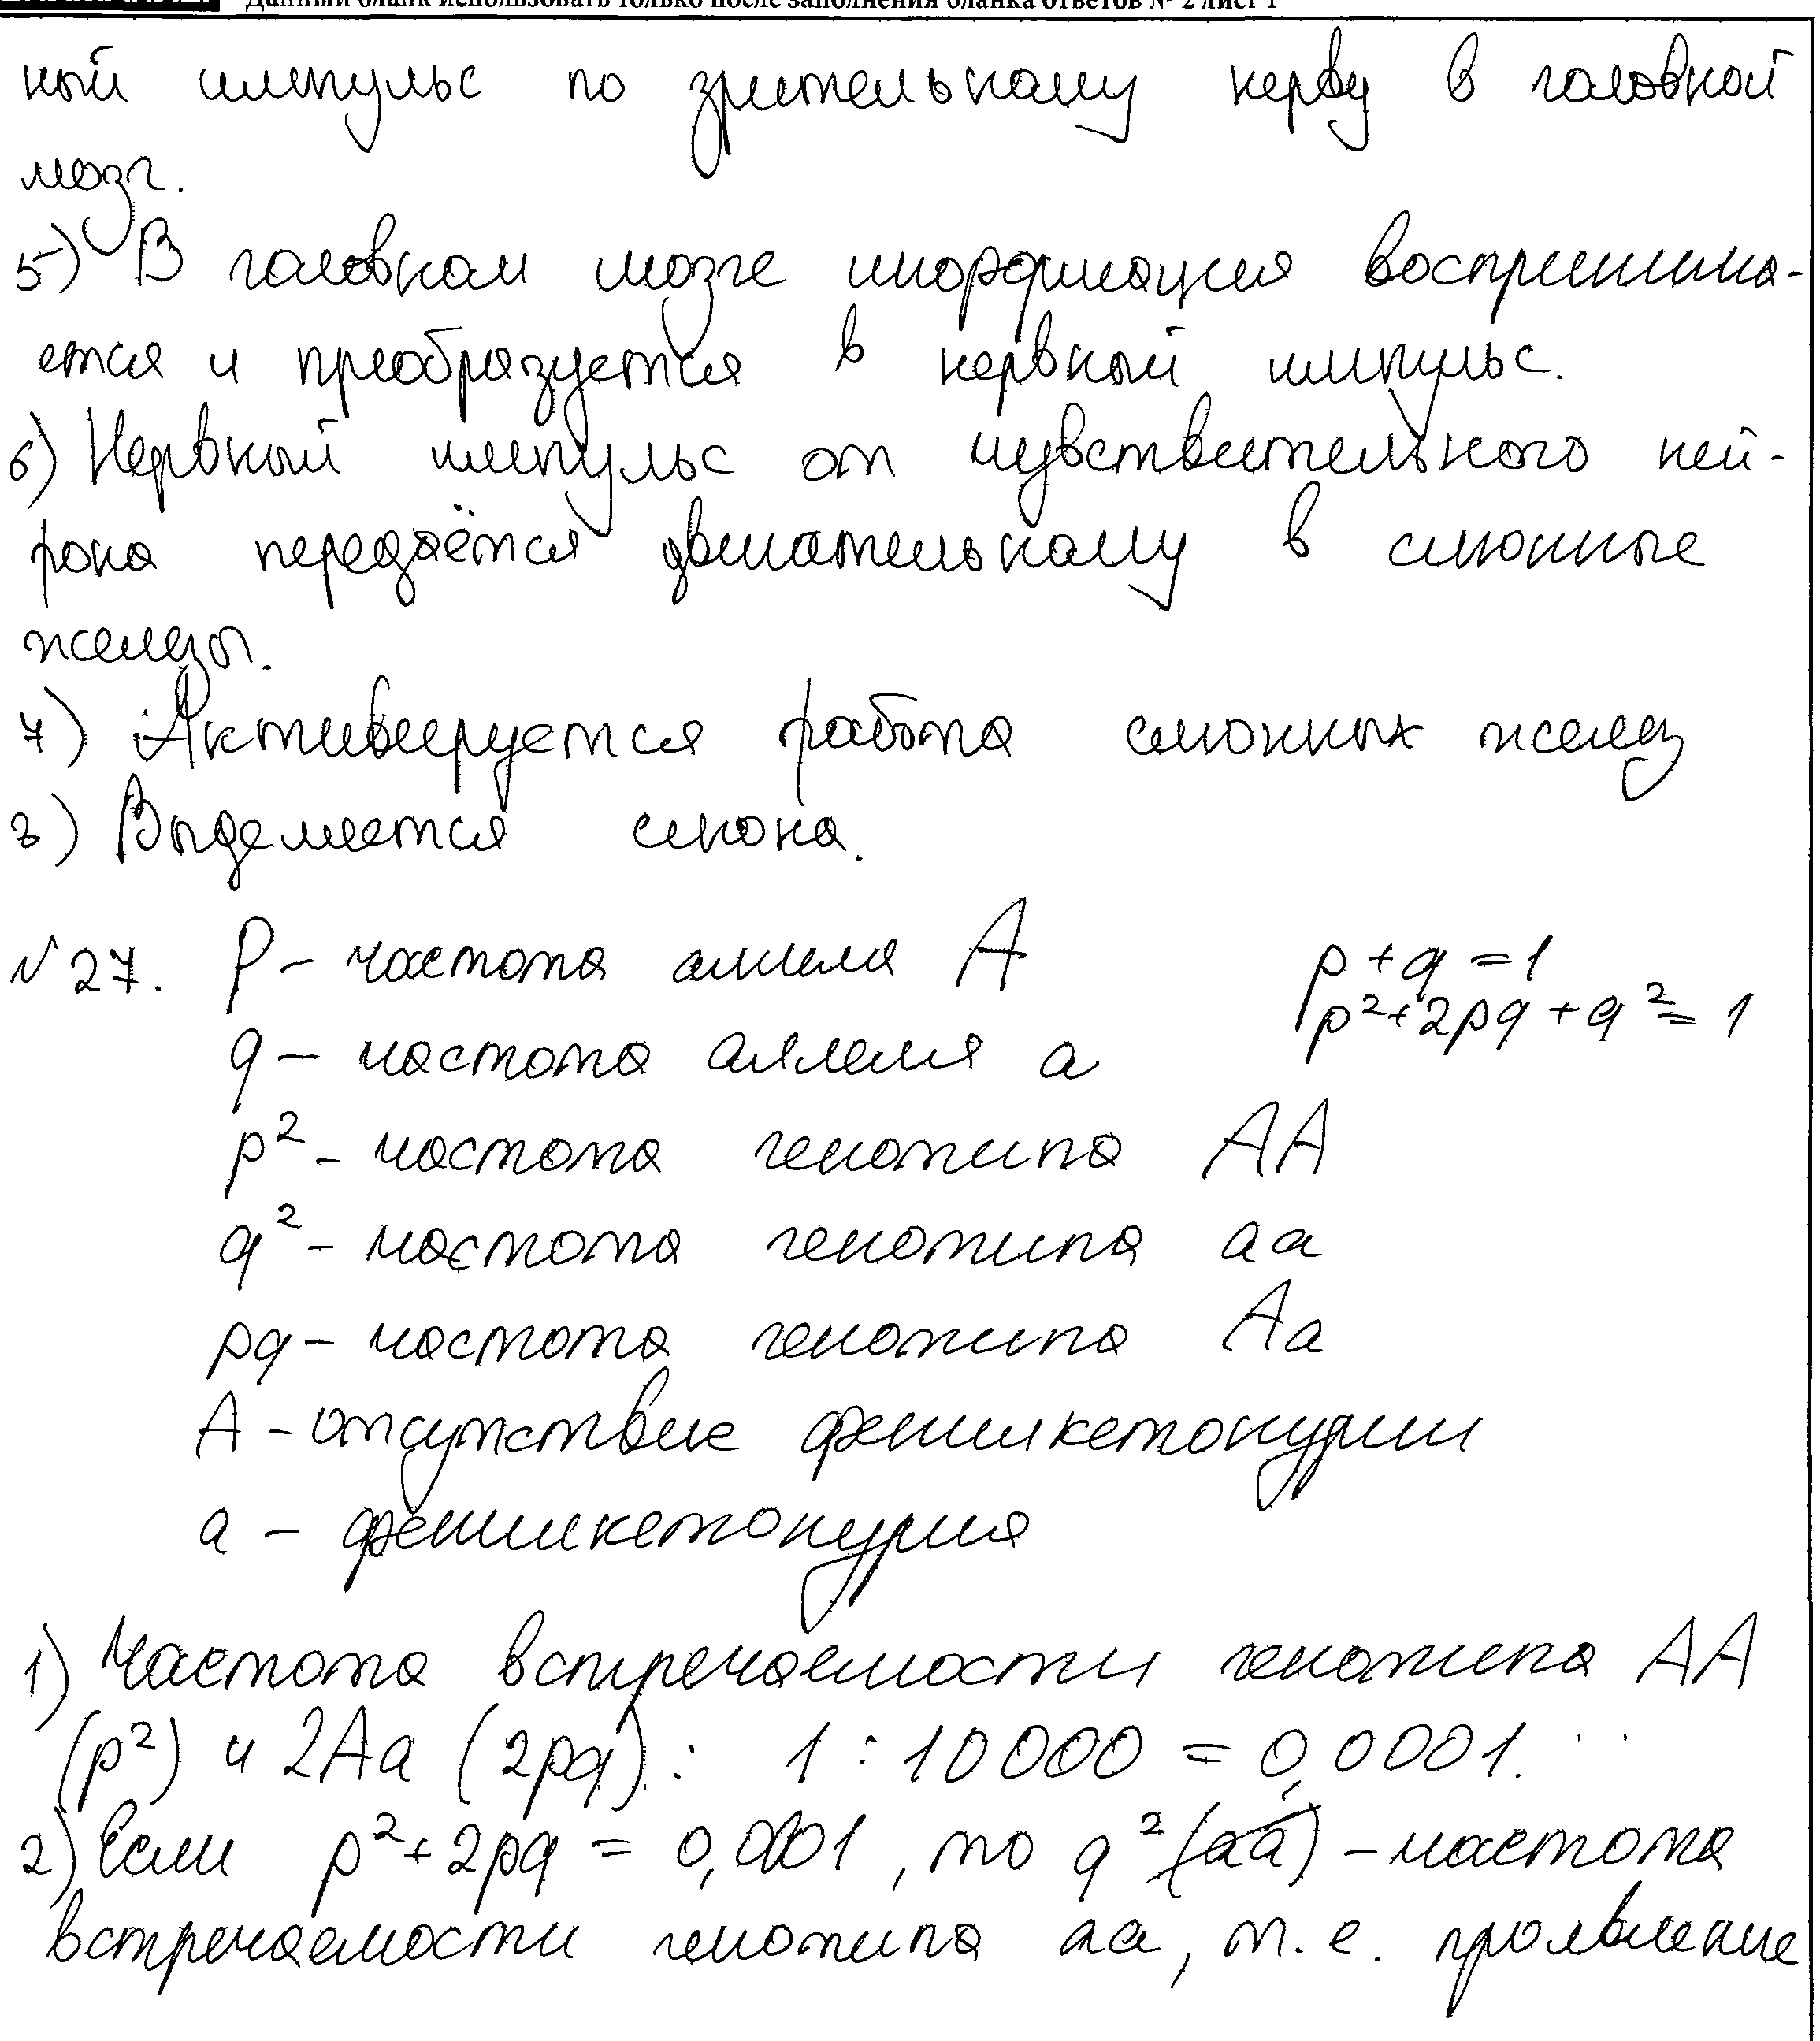 Данный бланк использовать только после заполнения бланка ответов № 2 лист 1
ный импульс по зрительному нерву в головной
мозг.
5) В головном мозге инорформация воспринима-
ется и преобразуется в нервный импульс.
6) Нервный импульс от чувствительного ней-
рона передаётся двигательному в слюнные
железы.
7) Активируется работа слюнных желез
8) Выделяется слюна.
№27. p – частота аллеля А p + q = 1
p² + 2pq + q² = 1
q – частота аллеля а
p² – частота генотипа АА
q² – частота генотипа аа
pq – частота генотипа Аа
А – отсутствие фенилкетонурии
а – фенилкетонурия
1) Частота встречаемости генотипа АА
(p²) и 2Аа (2pq): 1 : 10000 = 0,0001.
2) Если p² + 2pq = 0,0001, то q² (аа) – частота
встречаемости генотипа аа, т. е. проявление